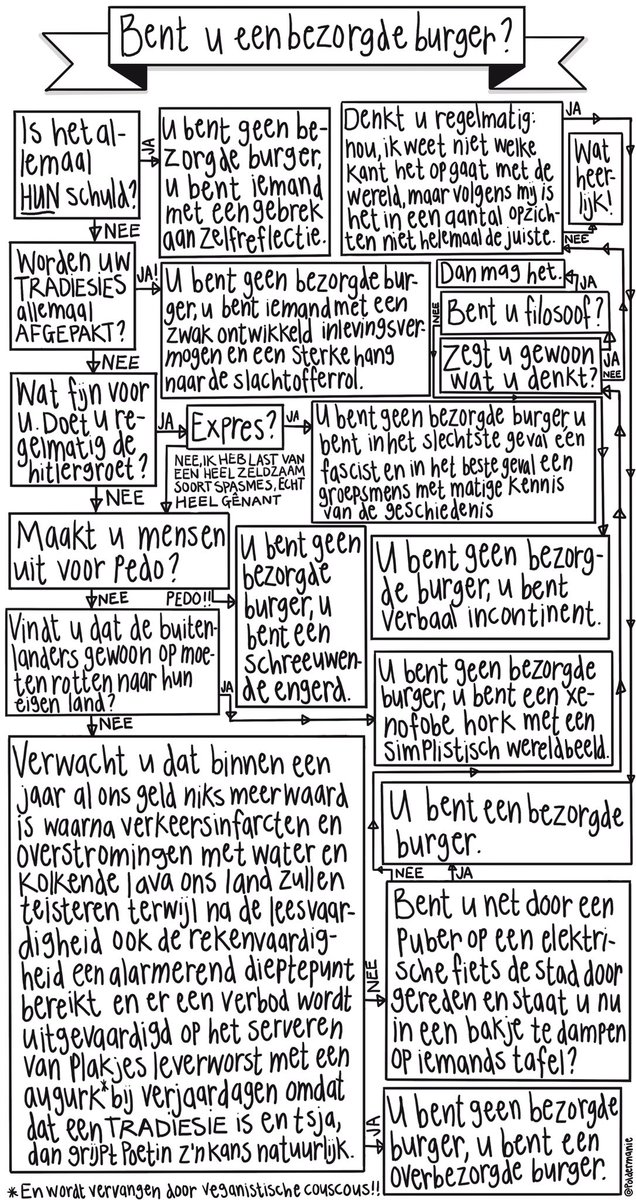 Bent u een bezorgde burger?
Is het al-
lemaal
HUN schuld?
JA
U bent geen be-
zorgde burger,
u bent iemand
met een gebrek
aan zelfreflectie.
NEE
Worden uw
TRADIESIES
allemaal
AFGEPAKT?
JA!
U bent geen bezorgde bur-
ger, u bent iemand met een
zwak ontwikkeld inlevingsver-
mogen en een sterke hang
naar de slachtofferrol.
NEE
Wat fijn voor
u. Doet u re-
gelmatig de
hitlergroet?
JA
Expres?
JA
U bent geen bezorgde burger, u
bent in het slechtste geval één
fascist en in het beste geval één
groepsmens met matige kennis
van de geschiedenis
NEE, IK HEB LAST VAN
EEN HEEL ZELDZAAM
SOORT SPASMES, ECHT
HEEL GÊNANT
NEE
Maakt u mensen
uit voor pedo?
PEDO!!
U bent geen
bezorgde
burger, u
bent een
schreeuwen-
de engerd.
NEE
Vindt u dat de buiten-
landers gewoon op moe-
ten rotten naar hun
eigen land?
JA
U bent geen bezorgde
burger, u bent een xe-
nofobe hork met een
simplistisch wereldbeeld.
NEE
Verwacht u dat binnen een
jaar al ons geld niks meer waard
is waarna verkeersinfarcten en
overstromingen met water en
kolkende lava ons land zullen
teisteren terwijl na de leesvaar-
digheid ook de rekenvaardig-
heid een alarmerend dieptepunt
bereikt en er een verbod wordt
uitgevaardigd op het serveren
van plakjes leverworst met een
augurk* bij verjaardagen omdat
dat een TRADIESIE is en tsja,
dan grijpt Poetin z'n kans natuurlijk.
JA
U bent geen bezorgde
burger, u bent een
overbezorgde burger.
NEE
Bent u net door een
puber op een elektri-
sche fiets de stad door
gereden en staat u nu
in een bakje te dampen
op iemands tafel?
JA
U bent een bezorgde
burger.
NEE
Zegt u gewoon
wat u denkt?
JA
NEE
Bent u filosoof?
JA
Dan mag het.
NEE
U bent geen bezorg-
de burger, u bent
verbaal incontinent.
Denkt u regelmatig:
nou, ik weet niet welke
kant het op gaat met de
wereld, maar volgens mij is
het in een aantal opzich-
ten niet helemaal de juiste.
JA
NEE
Wat
heer-
lijk!
* En wordt vervangen door veganistische couscous!!
@poldermanie